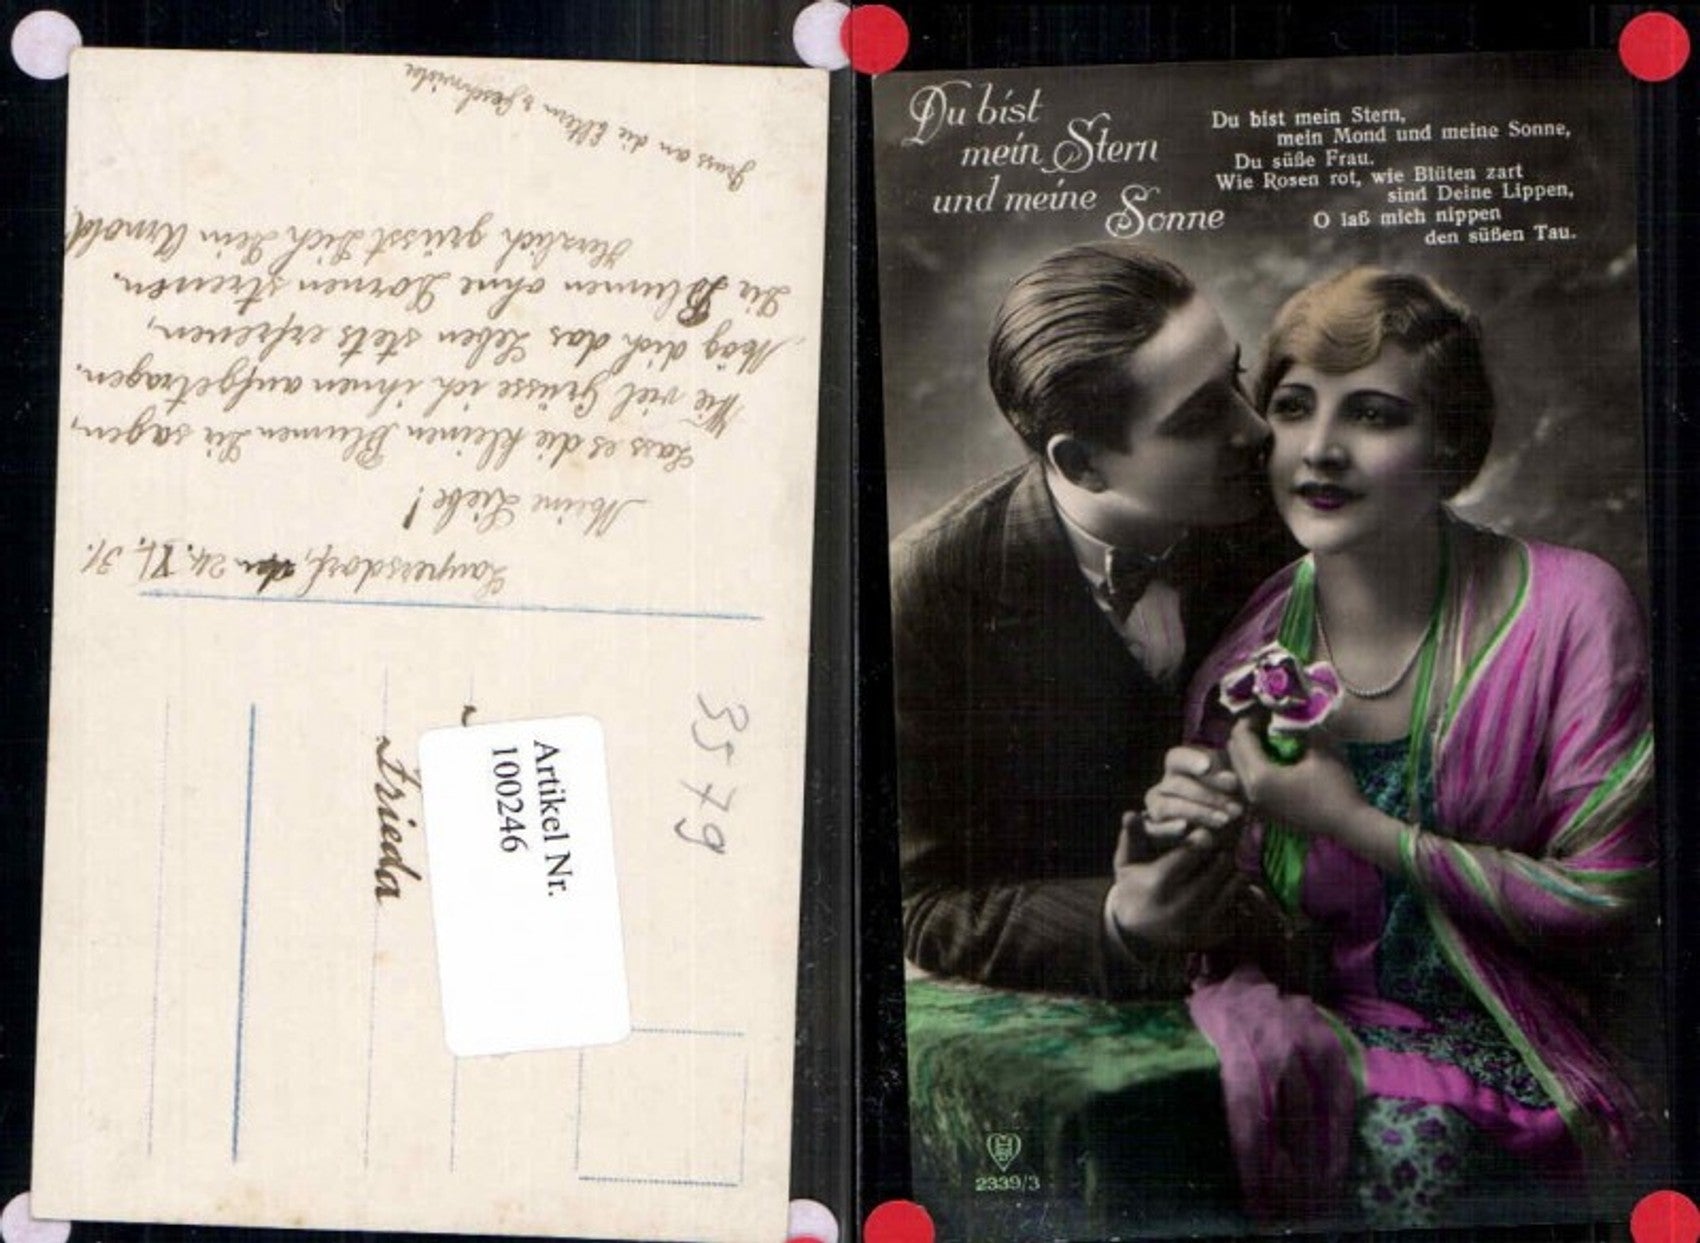 Laupersdorf, den 24. XI. 31.
Meine Liebe!
Lass es die kleinen Blumen Dir sagen,
Wie viel Grüsse ich ihnen aufgetragen.
Mög dich das Leben stets erfreuen,
Dir Blumen ohne Dornen streuen.
Herzlich grüsst Dich Dein Arnold
Gruss an die Eltern & Geschwister
Frieda
Artikel Nr.
100246
3579
Du bist
mein Stern
und meine
Sonne
Du bist mein Stern,
mein Mond und meine Sonne,
Du süße Frau.
Wie Rosen rot, wie Blüten zart
sind Deine Lippen,
O laß mich nippen
den süßen Tau.
2339/3